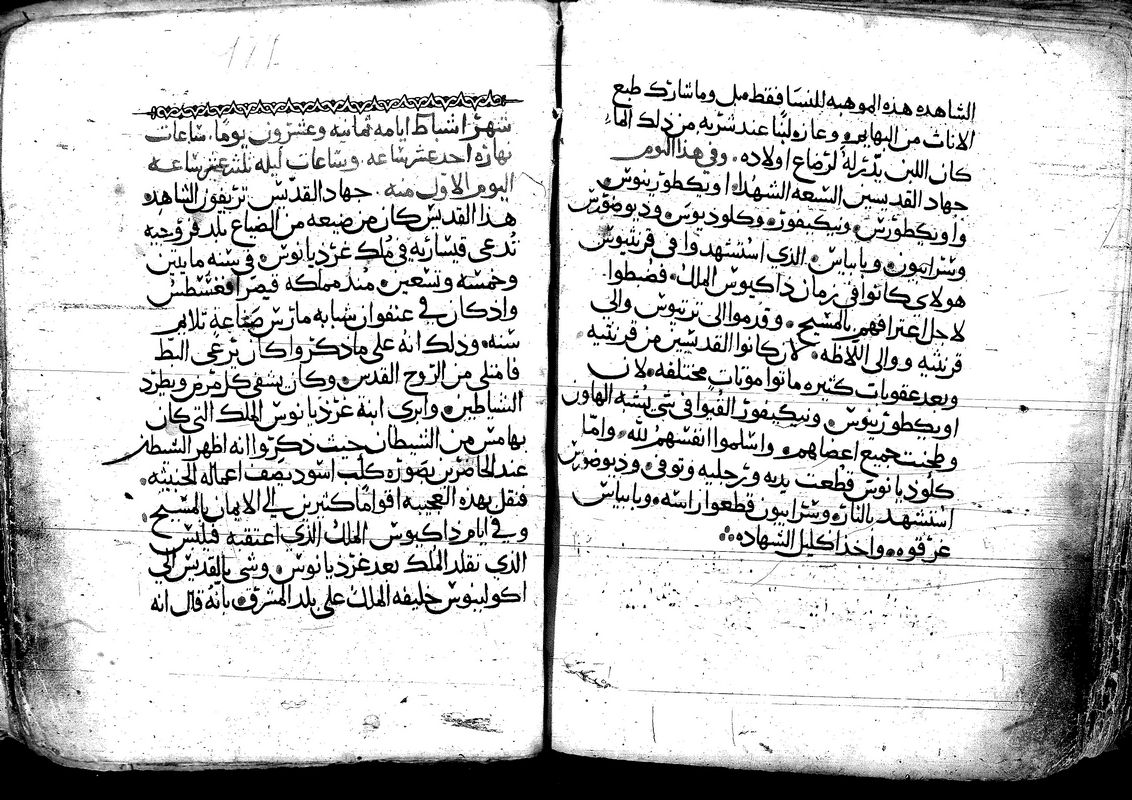 الشاهده هذه الموهبه للنسا فقط مبل وماشارك طبع
الاناث من البهايم وعازه لبنا عند شربه من ذلك الماء
كان اللبن يدرله لرضاع اولاده. وفي هذا اليوم
جهاد القديسين السبعه الشهدا اويكطورينوس
واويكطورس ونيكيفورس وكلوديوس وديوضورس
وسرابيون وبابياس الذي استشهدوا في قرنتيوس
هولاي كانوا في زمان داكيوس الملك فضبطوا
لاجل اعترافهم بالمسيح وقدموا الى ترتيوس والي
قرنثيه ووالي اللاطه لان كانوا القديسين من قرنثيه
وبعد عقوبات كثيره ماتوا موتات مختلفه لان
اويكطورينوس ونيكيفور القيوا في شي يشبه الهاون
وطحنت جميع اعضاهم واسلموا انفسهم لله واما
كلوديانوس قطعت يديه ورجليه وتوفي وديوضورس
استشهد بالنار وسرابيون قطعوا راسه وبابياس
غرقوه واخذ اكليل الشهاده
شهر اشباط ايامه ثمانيه وعشرون يوما، ساعات
نهاره احدعشر ساعه وساعات ليله ثلثعشر ساعه
اليوم الاول منه. جهاد القديس تريفون الشاهد
هذا القديس كان من ضيعه من الضياع بلد فروجيه
تدعى قيساريه في ملك غرديانوس في سنه مايتين
وخمسه وتسعين منذ مملكه قيصر افغسطس
واذ كان في عنفوان شبابه مارس صناعه تلايم
سنه وذلك انه على ماذكروا كان يرعى البط
فامتلى من الروح القدس وكان يشفي كل مرض ويطرد
الشياطين وابرى ابنة غرديانوس الملك التي كان
بها مس من الشيطان حيث ذكروا انه اظهر الشيطان
عند الحاضرين بصوره كلب اسود يصف اعماله الخبيثيه
فنقل بهذه العجيبه اقواما كتيرين الى الايمان بالمسيح
وفي ايام داكيوس الملك الذي اعتقبه فيلبس
الذي تقلد الملك بعد غرديانوس وشي بالقديس الى
اكولينوس خليفه الملك على بلد المشرق بانه قال انه